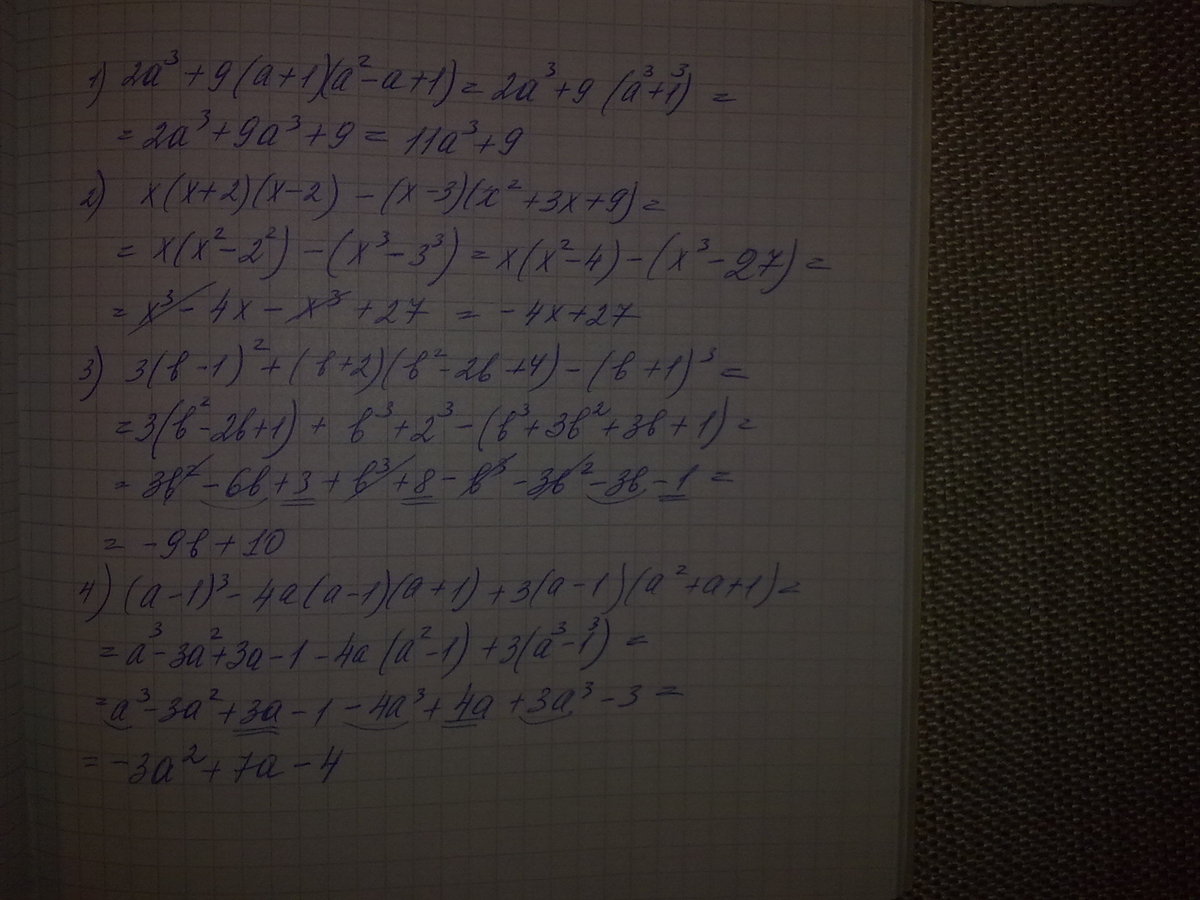 1) 2a³ + 9(a+1)(a²-a+1) = 2a³+9(a³+1³) =
= 2a³+9a³+9 = 11a³+9
2) x(x+2)(x-2) - (x-3)(x²+3x+9) =
= x(x²-2²) - (x³-3³) = x(x²-4) - (x³-27) =
= x³ - 4x - x³ + 27 = -4x+27
3) 3(b-1)² + (b+2)(b²-2b+4) - (b+1)³ =
= 3(b²-2b+1) + b³+2³ - (b³+3b²+3b+1) =
= 3b² - 6b + 3 + b³ + 8 - b³ - 3b² - 3b - 1 =
= -9b + 10
4) (a-1)³ - 4a(a-1)(a+1) + 3(a-1)(a²+a+1) =
= a³-3a²+3a-1-4a(a²-1)+3(a³-1³) =
= a³-3a²+3a-1-4a³+4a+3a³-3 =
= -3a²+7a-4